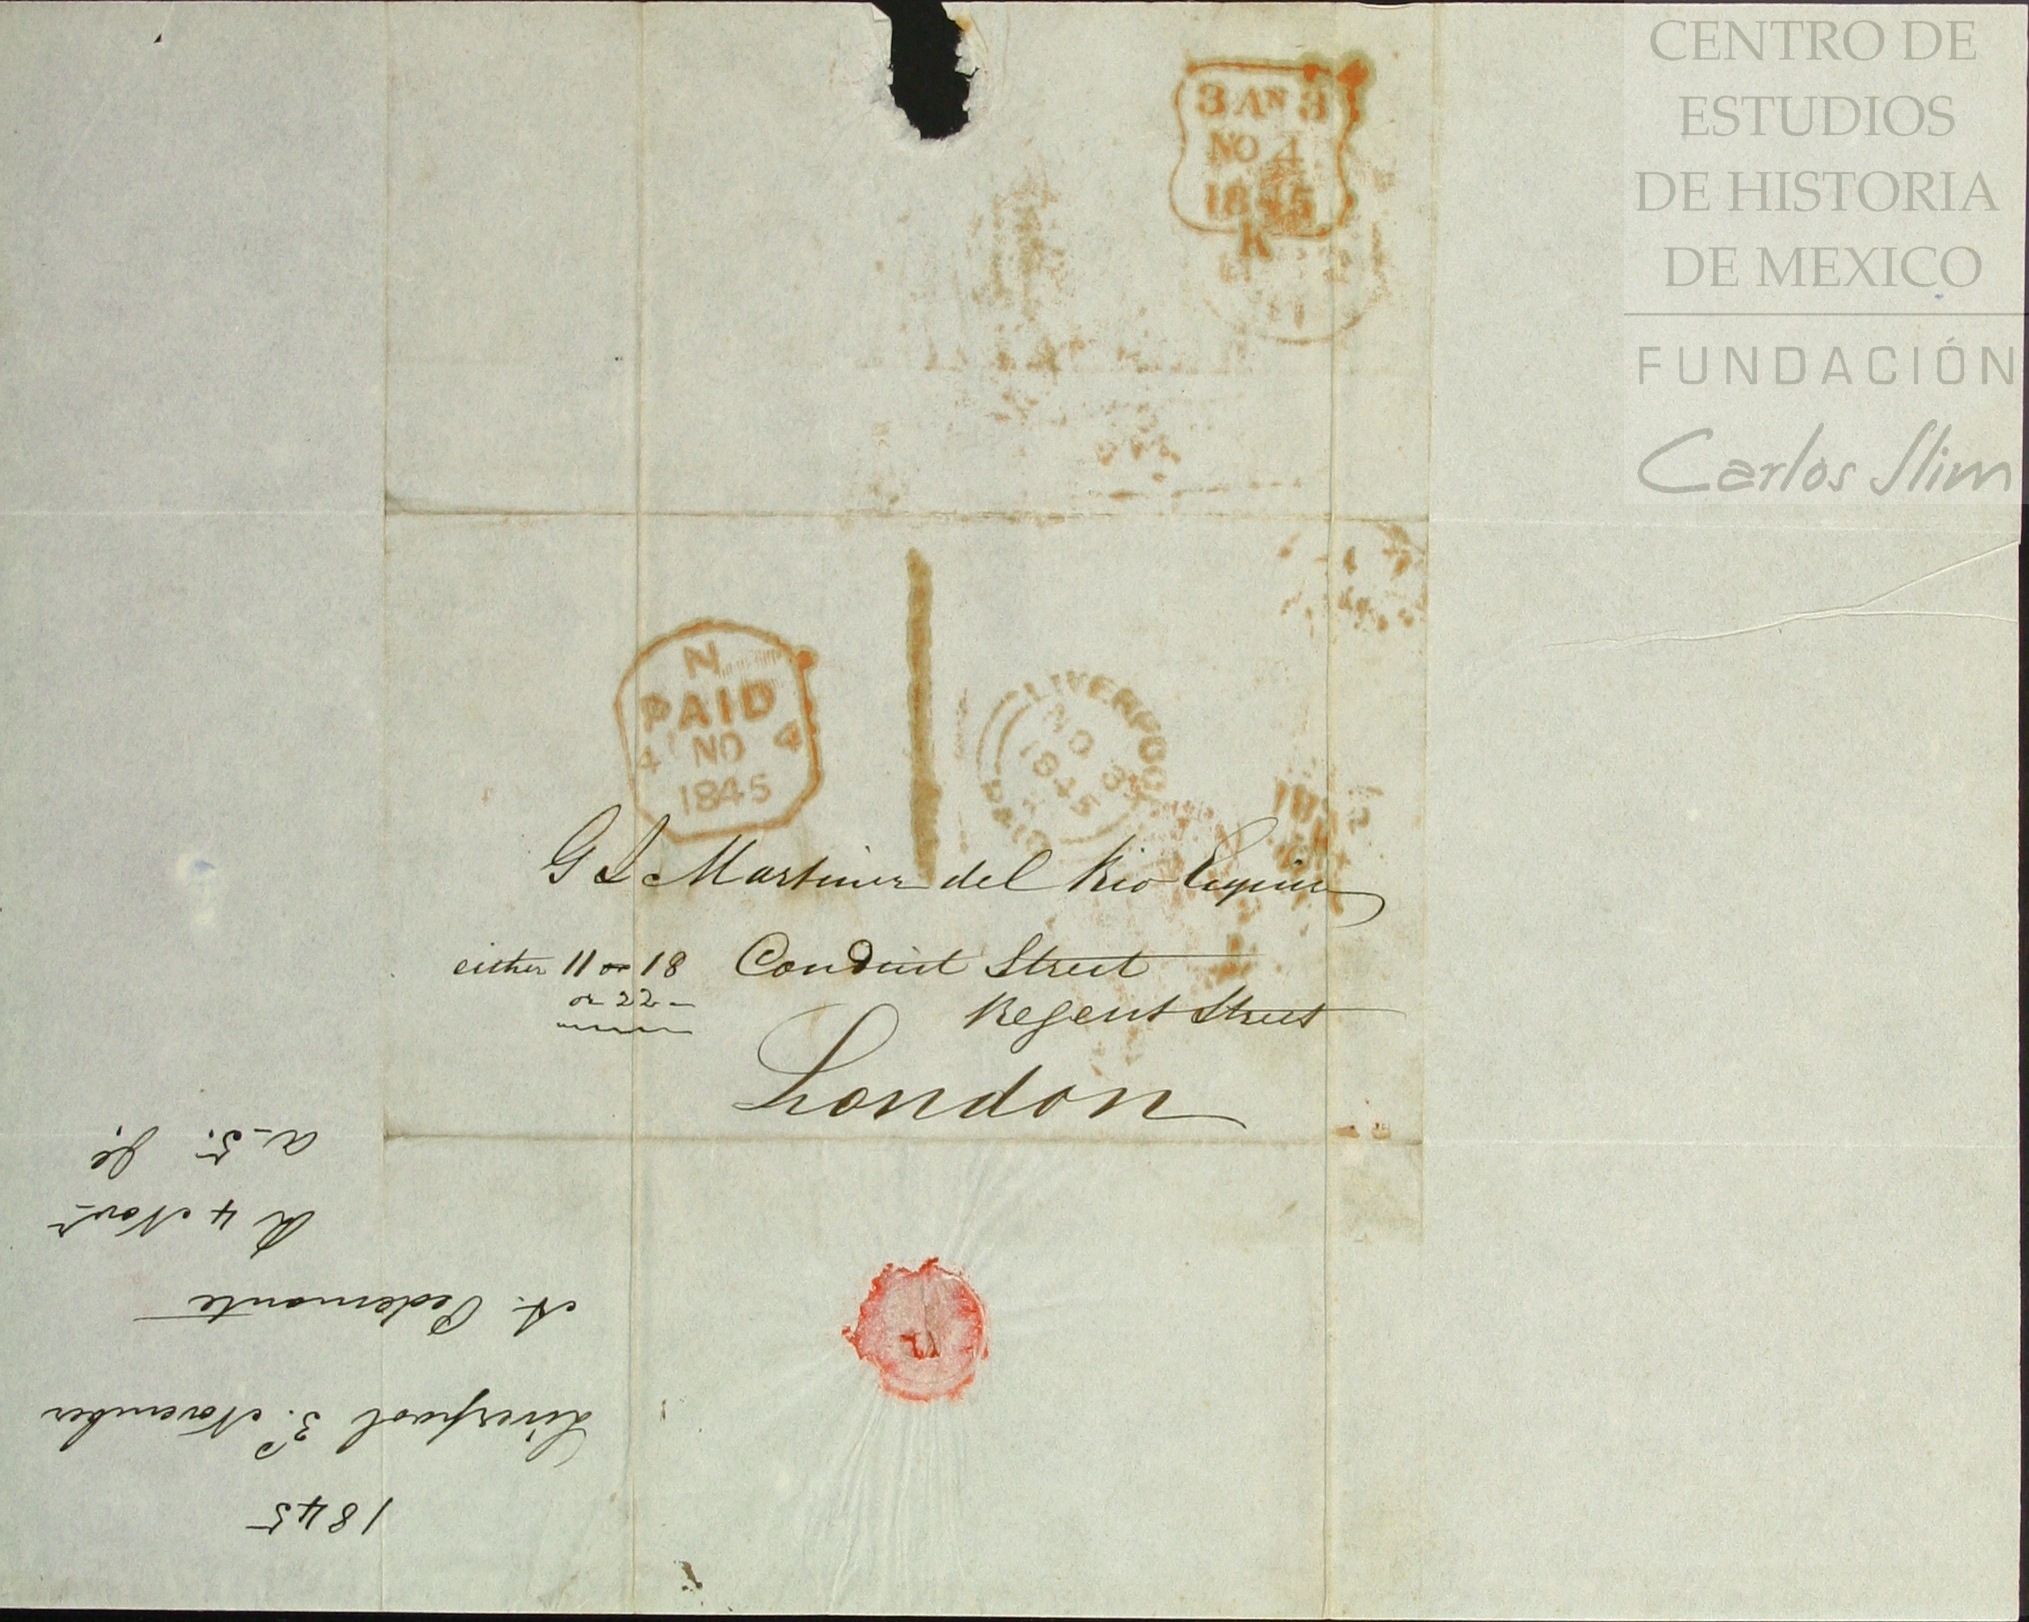 CENTRO DE
ESTUDIOS
DE HISTORIA
DE MEXICO
FUNDACIÓN
Carlos Slim
3 AN 3
NO 4
1845
K
N
PAID
4 NO 4
1845
LIVERPOOL
NO 3
1845
PAID
G J Martinez del Rio Esquire
either 11 or 18 Conduit Street
or 22
Regent Street
London
1845
Liverpool 3 November
A. Pedemonte
R 4 Novr
a 5.